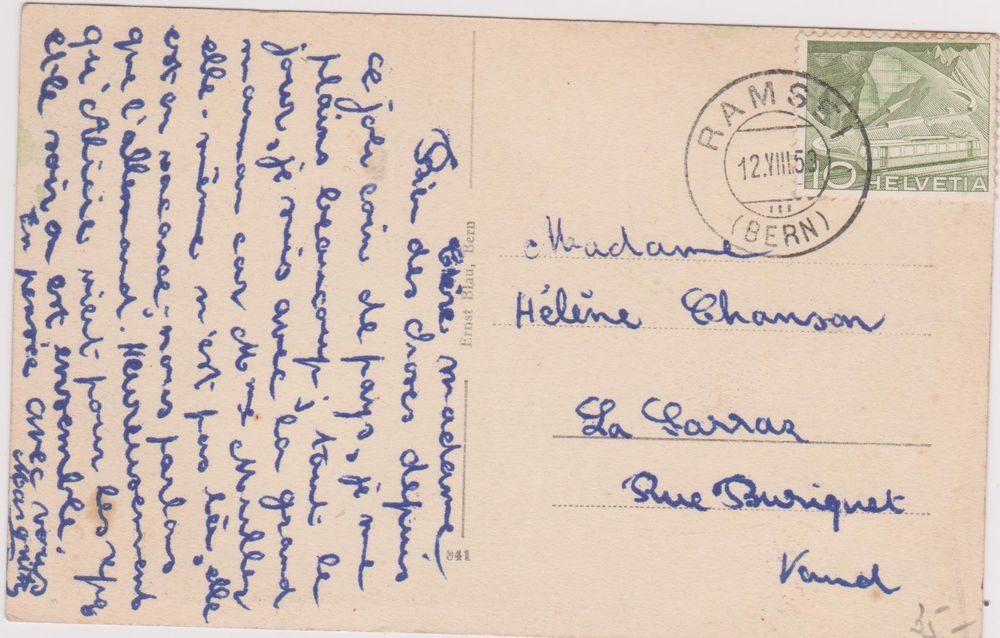 Chère madame,
Bien des choses depuis
ce joli coin de pays, je me
plais beaucoup, tout le
jour, je suis avec la grand
maman car Mme Muller
elle-même n'est pas là, elle
est en vacance, nous parlons
que l'allemand. Heureusement
qu'Alice vient pour les repas
et le soir on est ensemble.
En pensée avec vous
Ernst Blau, Bern
841
RAMSEI
12.VIII.53
(BERN)
10 HELVETIA
Madame
Hélène Chanson
La Sarraz
Rue Buriquet
Vaud
35.-